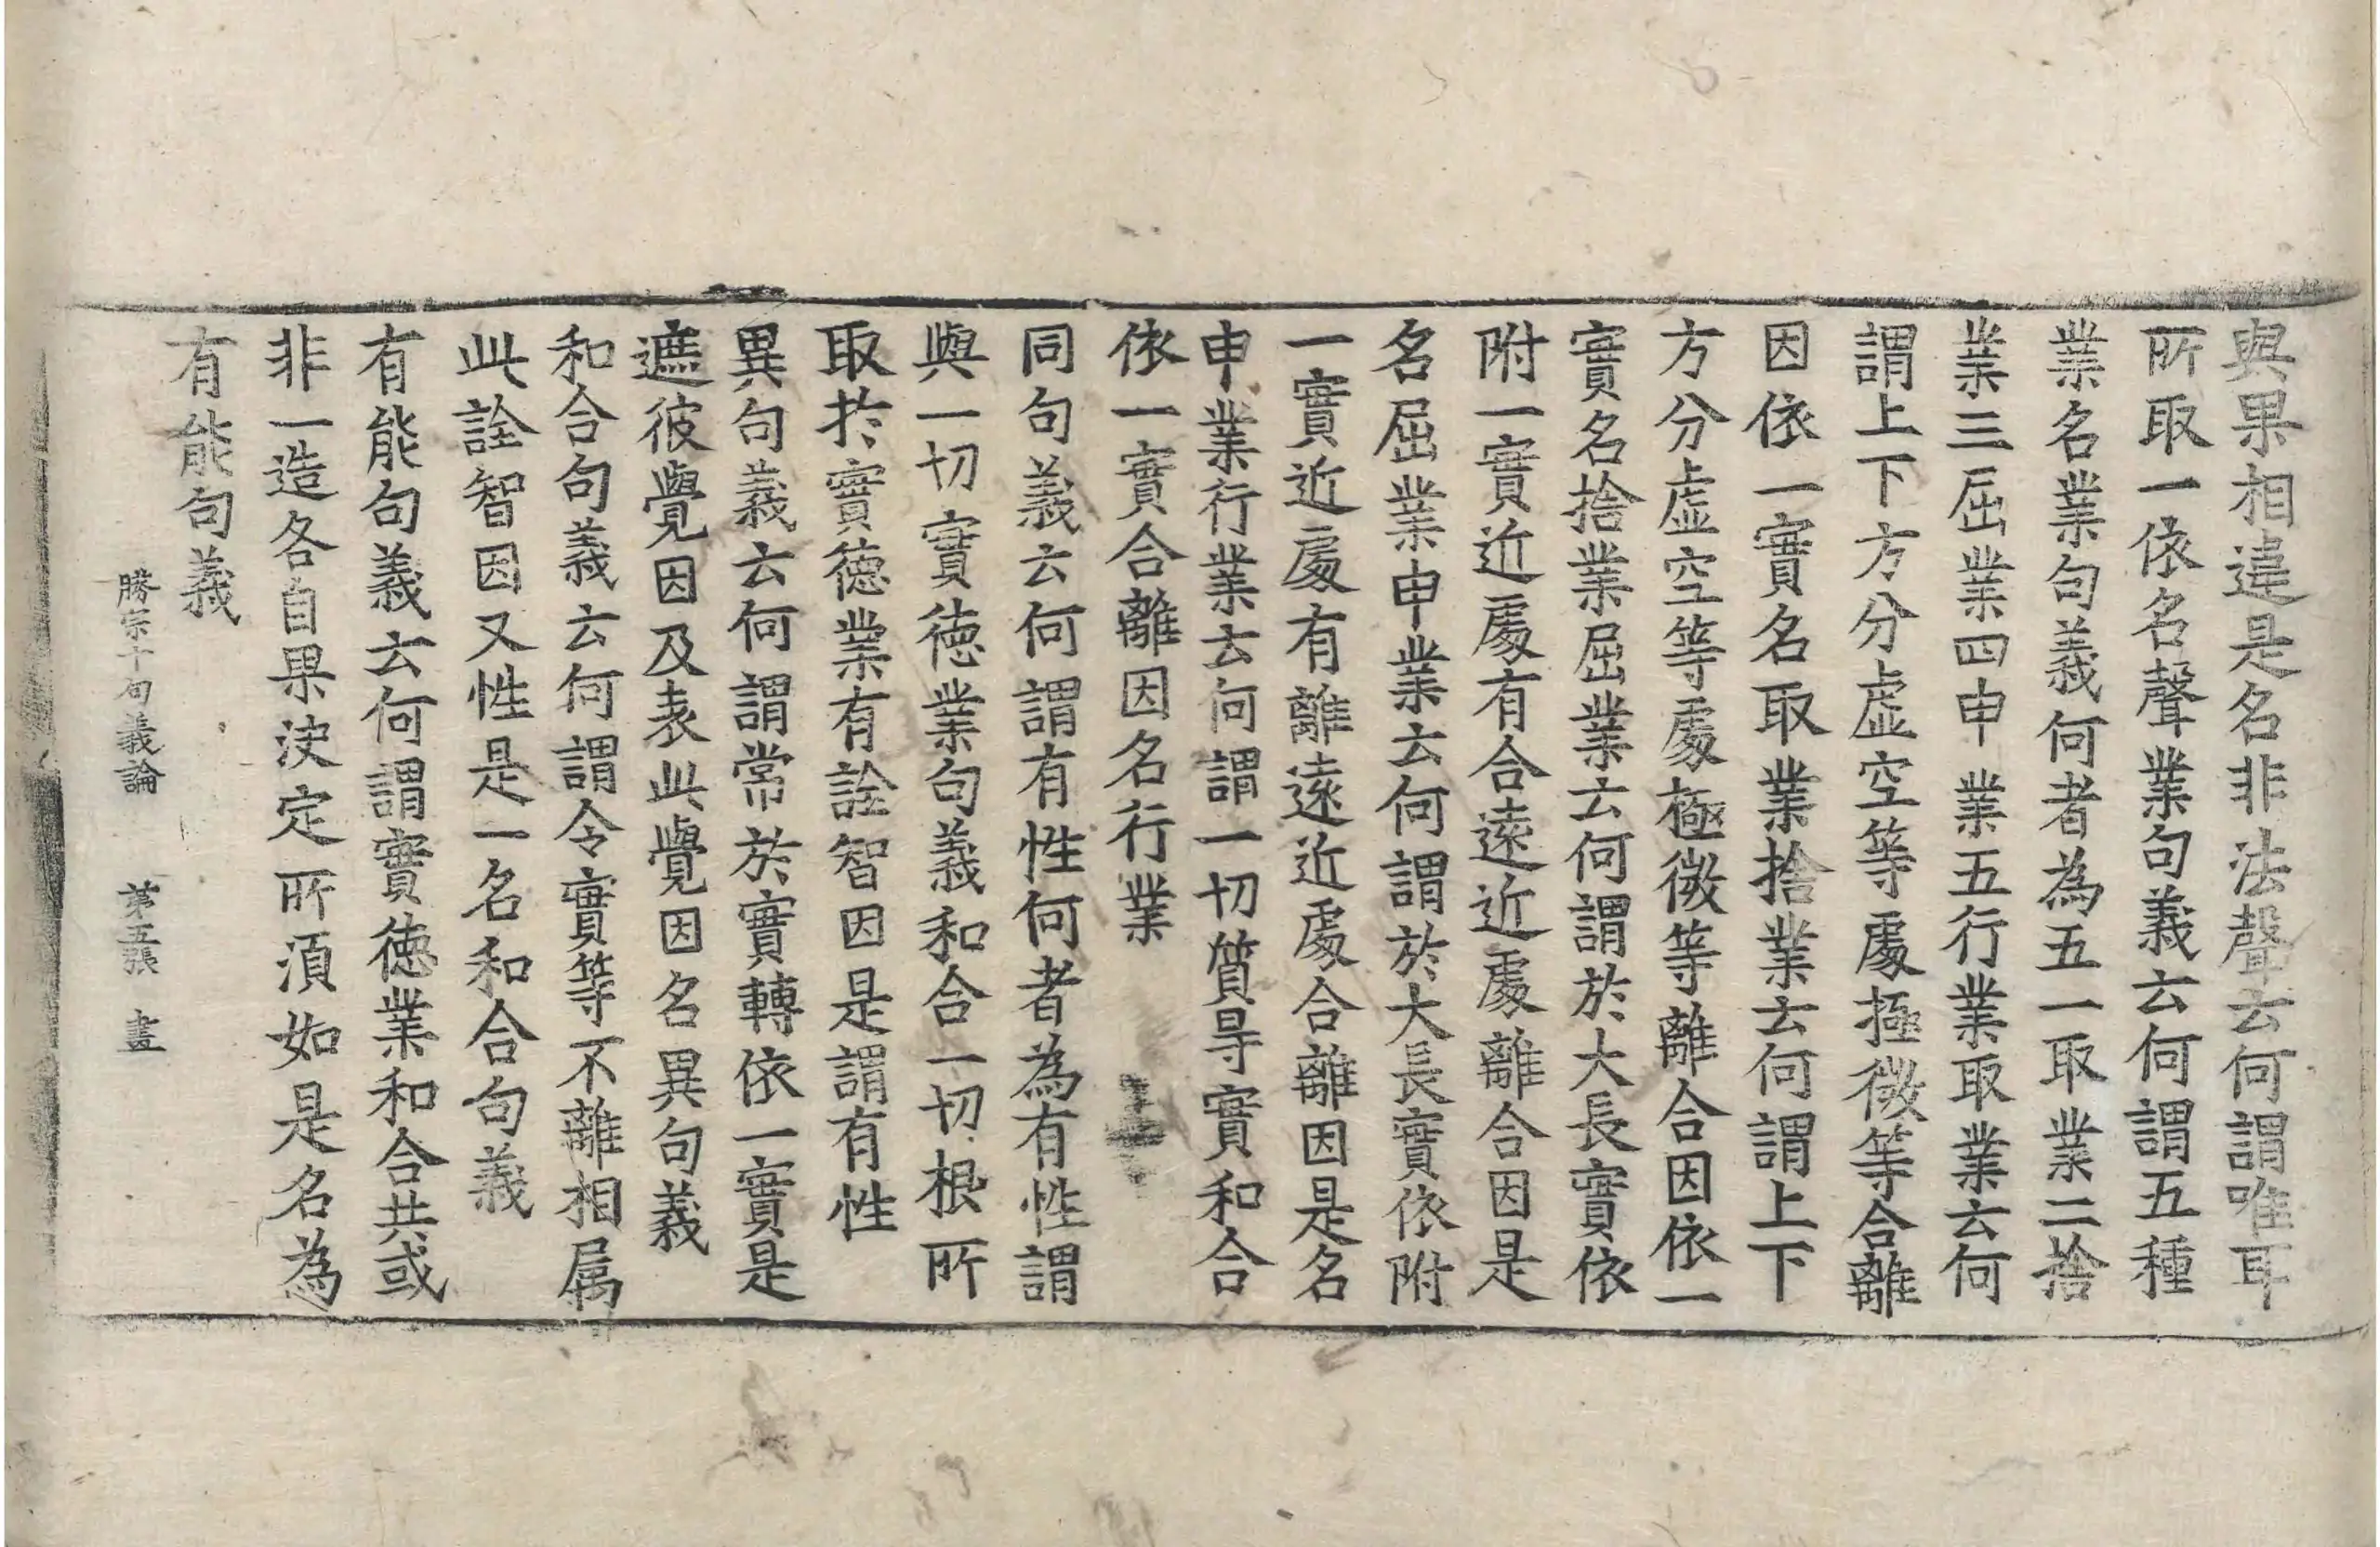 與果相違是名非法聲云何謂唯耳
所取一依名聲業句義云何謂五種
業名業句義何者為五一取業二捨
業三屈業四申業五行業取業云何
謂上下方分虛空等處極微等合離
因依一實名取業捨業云何謂上下
方分虛空等處極微等離合因依一
實名捨業屈業云何謂於大長實依
附一實近處有合遠近處離合因是
名屈業申業云何謂於大長實依附
一實近處有離遠近處合離因是名
申業行業云何謂一切質㝵實和合
依一實合離因名行業
同句義云何謂有性何者為有性謂
與一切實德業句義和合一切根所
取於實德業有詮智因是謂有性
異句義云何謂常於實轉依一實是
遮彼覺因及表此覺因名異句義
和合句義云何謂令實等不離相属
此詮智因又性是一名和合句義
有能句義云何謂實德業和合共或
非一造各自果決定所須如是名為
有能句義
勝宗十句義論 第五張 畫